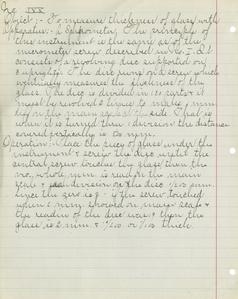 No. IXX
Object :- To measure thickness of glass with
Apparatus :- Spherometer, The principle of
this instrument is the same as of the
micrometer screw described in No. I. It
consists of a revolving disc supported on
3 uprights. The disc turns on screw which
evidently measure the thickness of the
glass. The disc is divided in 100 parts &
must be revolved 2 times to make 1 mm.
high on the main scale at the side. That is
when it is turned thru 1 division the distance
covered vertically is 1/200 mm.
Operation :- Place the piece of glass under the
instrument & screw the disc until the
central screw touches the glass then the
no. whole mm. is read on the main
scale & division on the disc 1/200 mm.
Since the zero e.g. if the screw touched
when 2 mm. showed on main scale &
the reading of the disc was then the
glass is 2 mm. + thick.